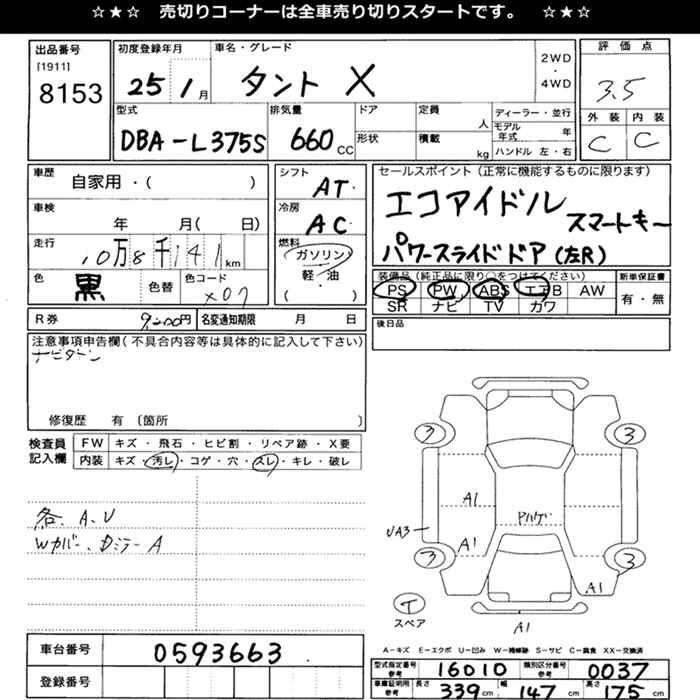 ☆★☆ 売切りコーナーは全車売り切りスタートです。 ☆★☆
出品番号 初度登録年月 車名・グレード 評価点
[1911] 8153 25 1月 タント X 2WD・4WD 3.5
外装 内装
C C
型式 排気量 ドア 定員 ディーラー・並行
DBA-L375S 660CC 形状 人 モデル年式 年
積載 kg ハンドル 左・右
車歴 自家用・( ) シフト AT セールスポイント(正常に機能するものに限ります)
車検 年 月( 日) 冷房 AC エコアイドル スマートキー
走行 10万8千141km 燃料 ガソリン・軽・油 ( ) パワースライドドア(左R)
色 黒 色替 色コード X07
装備品(純正品に限り○をつけてください) 新車保証書
PS PW ABS エアB AW 有・無
SR ナビ TV カワ
R券 円 名変通知期限 月 日 後日品
注意事項申告欄(不具合内容等は具体的に記入して下さい)
修復歴 有 〔箇所 〕
検査員記入欄 FW キズ・飛石・ヒビ割・リペア跡・X要
内装 キズ・汚レ・コゲ・穴・スレ・キレ・破レ
各、A、U
Wカバー、Dミラー A
3 3
A1
UA3 A1
3 3
A1
T
スペア
A1
A-キズ E-エクボ U-凹み W-補修跡 S-サビ C-腐食 XX-交換済
車台番号 0593663 型式指定番号 参考 16010 類別区分番号 参考 0037
登録番号 車庫証明用 参考 長さ 339cm 幅 147cm 高さ 175cm